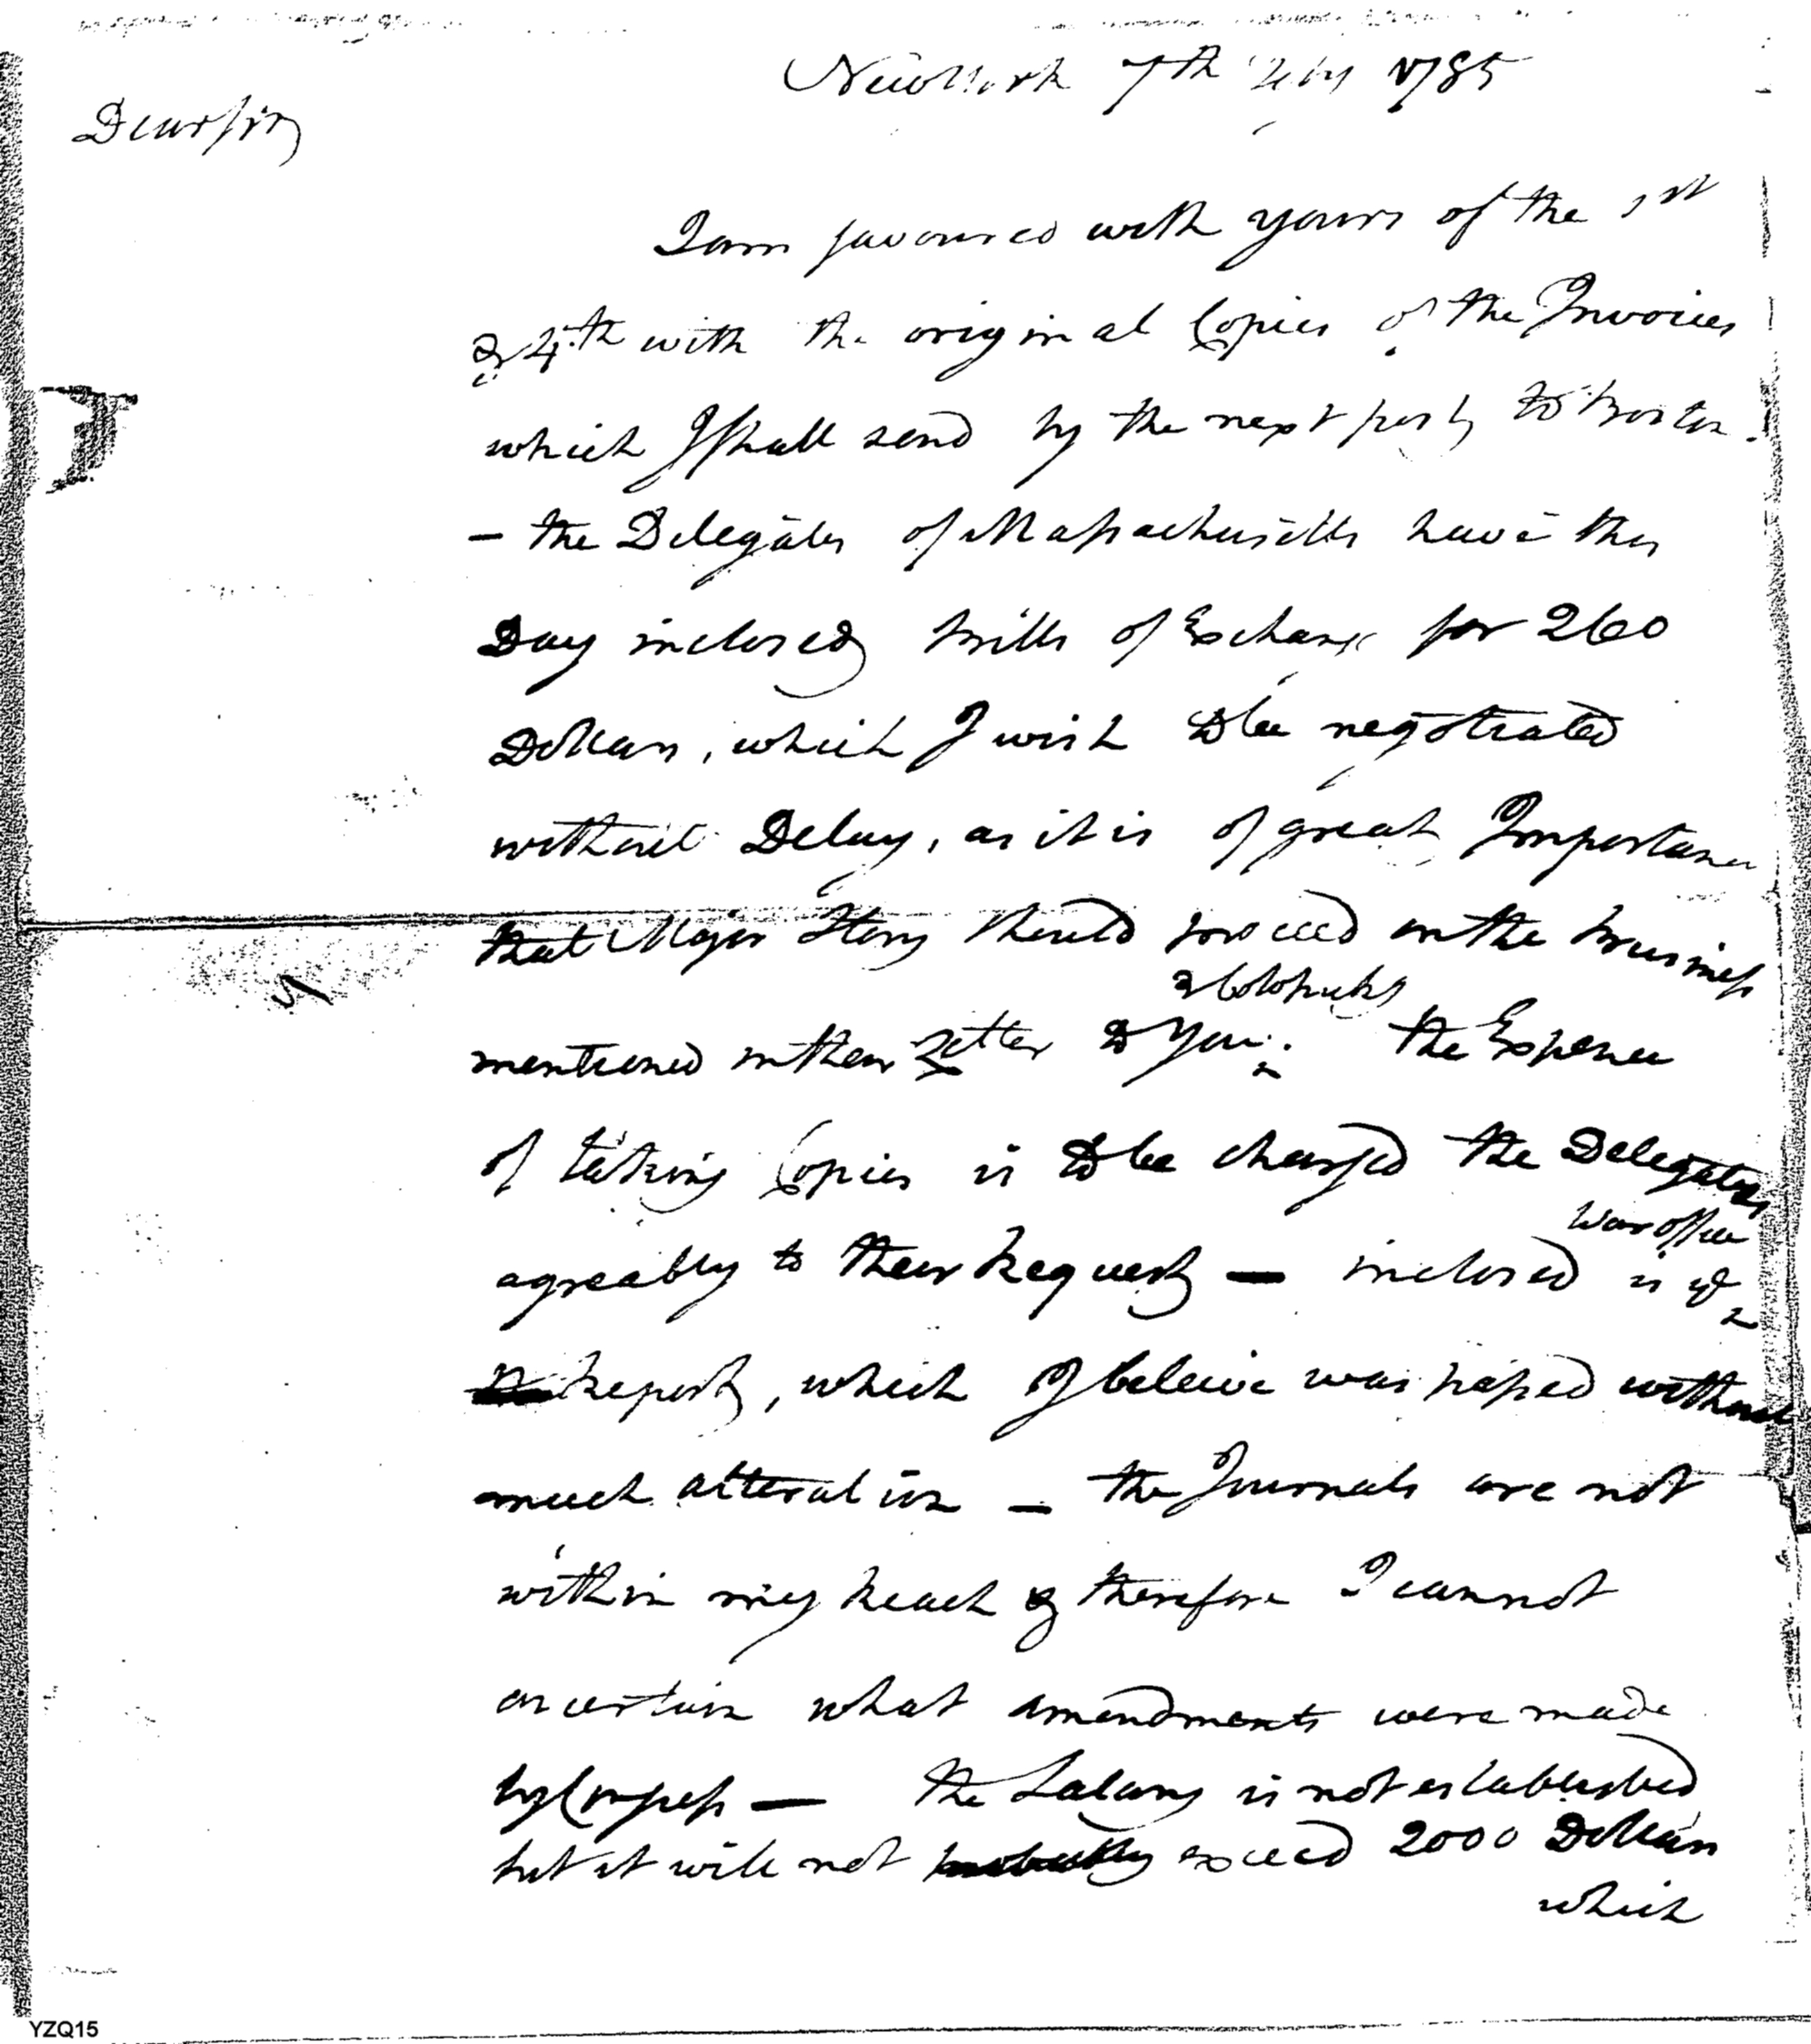 New York 7th Feby 1785
Dear sir
I am favoured with yours of the 1st
& 4th with the original Copies of the Invoices
which I shall send by the next post to Boston.
— the Delegates of Massachusetts have this
Day inclosed bills of Exchange for 260
Dollars, which I wish to be negotiated
without Delay, as it is of great Importance
that Major Story should proceed on the business
mentioned in their Letter to you
& Colo
the Expence
of taking Copies is to be charged the Delegates
agreably to their Request — inclosed is ye
War office
Report, which I beleive was passed without
much alteration — the Journals are not
within my Reach & therefore I cannot
ascertain what amendments were made
by Congress — the Salary is not established
but it will not probably exceed 2000 Dollars
which
YZQ15